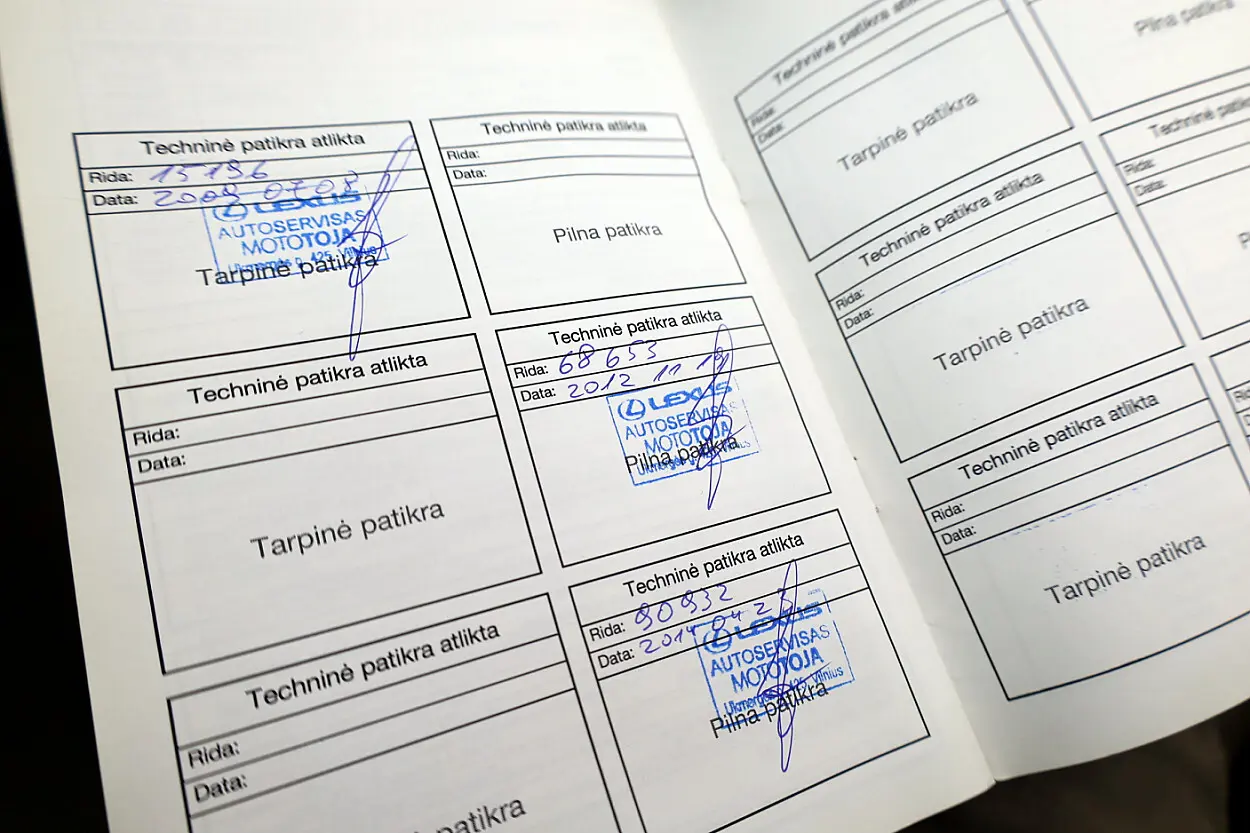 Techninė patikra atlikta
Rida: 15196
Data: 2009 07 08
LEXUS
AUTOSERVISAS
MOTOTOJA
Ukmergės g. 425, Vilnius
Tarpinė patikra
Techninė patikra atlikta
Rida:
Data:
Pilna patikra
Techninė patikra atlikta
Rida:
Data:
Tarpinė patikra
Techninė patikra atlikta
Rida: 68 653
Data: 2012 11 19
LEXUS
AUTOSERVISAS
MOTOTOJA
Ukmergės g. 425, Vilnius
Pilna patikra
Techninė patikra atlikta
Rida:
Data:
patikra
Techninė patikra atlikta
Rida: 90932
Data: 2014 04 23
LEXUS
AUTOSERVISAS
MOTOTOJA
Ukmergės g. 425, Vilnius
Pilna patikra
Techninė patikra atlikta
Rida:
Data:
Tarpinė patikra
Pilna patikra
Techninė patikra atlikta
Rida:
Data:
Tarpinė patikra
Techninė
Rida:
Data:
Techninė patikra atlikta
Rida:
Data:
Tarpinė patikra